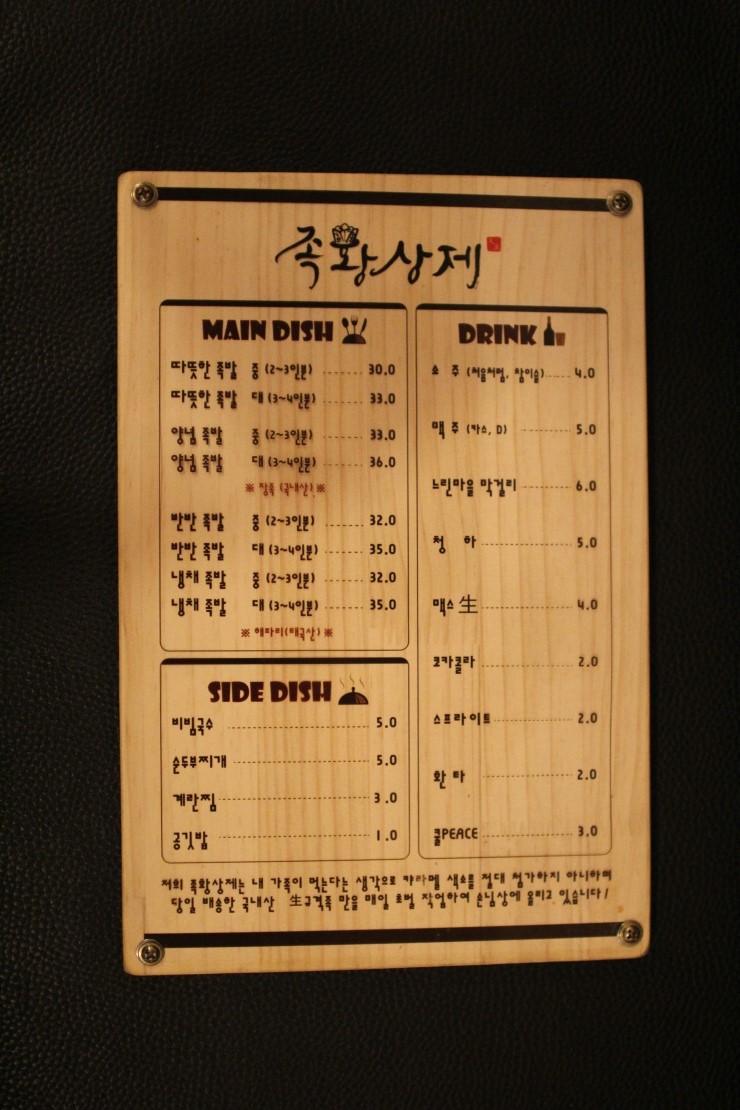 족황상제
MAIN DISH
따뜻한 족발 중 (2~3인분) 30.0
따뜻한 족발 대 (3~4인분) 33.0
양념 족발 중 (2~3인분) 33.0
양념 족발 대 (3~4인분) 36.0
※ 장족 (국내산) ※
반반 족발 중 (2~3인분) 32.0
반반 족발 대 (3~4인분) 35.0
냉채 족발 중 (2~3인분) 32.0
냉채 족발 대 (3~4인분) 35.0
※ 해파리(태국산) ※
SIDE DISH
비빔국수 5.0
순두부찌개 5.0
계란찜 3.0
공깃밥 1.0
DRINK
소 주 (처음처럼, 참이슬) 4.0
맥 주 (카스, D) 5.0
느린마을 막걸리 6.0
청 하 5.0
맥스 生 4.0
코카콜라 2.0
스프라이트 2.0
환 타 2.0
쿨PEACE 3.0
저희 족황상제는 내 가족이 먹는다는 생각으로 캬라멜 색소를 절대 첨가하지 아니하며
당일 배송한 국내산 生규격족 만을 매일 초벌 작업하여 손님상에 올리고 있습니다!